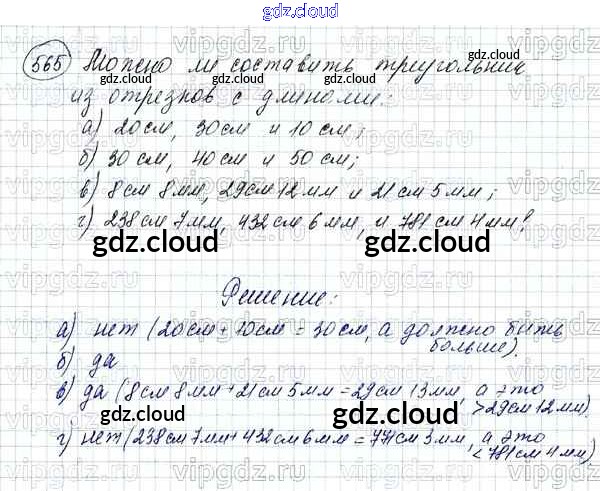 gdz.cloud
gdz.cloud
565 Можно ли составить треугольник
из отрезков с длинами:
а) 20см, 30см и 10см;
б) 30см, 40см и 50см;
в) 8см 8мм, 29см 12мм и 21см 5мм;
г) 238см 7мм, 432см 6мм, и 781см 4мм?
gdz.cloud gdz.cloud
Решение:
а) нет (20см + 10см = 30см, а должно быть
больше).
б) да
в) да (8см 8мм + 21см 5мм = 29см 13мм, а это
> 29см 12мм).
gdz.cloud
г) нет (238см 7мм + 432см 6мм = 771см 3мм, а это
< 781см 4мм)
gdz.cloud